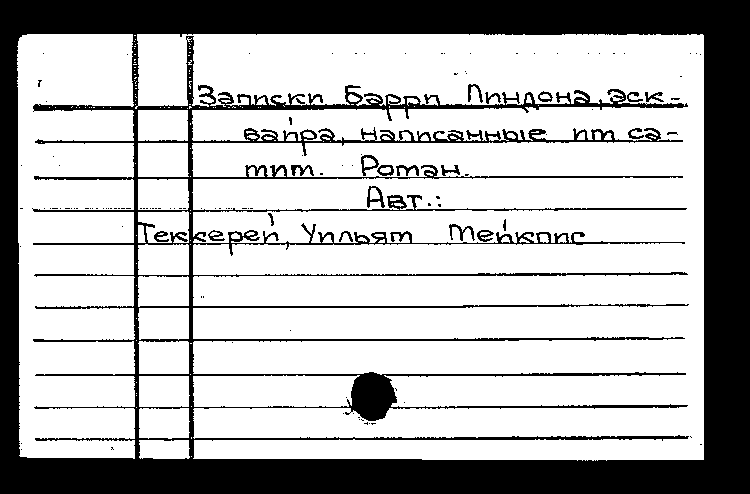 Записки Барри Линдона, эск-
вайра, написанные им са-
мим. Роман.
Авт.:
Теккерей, Уильям Мейкпис